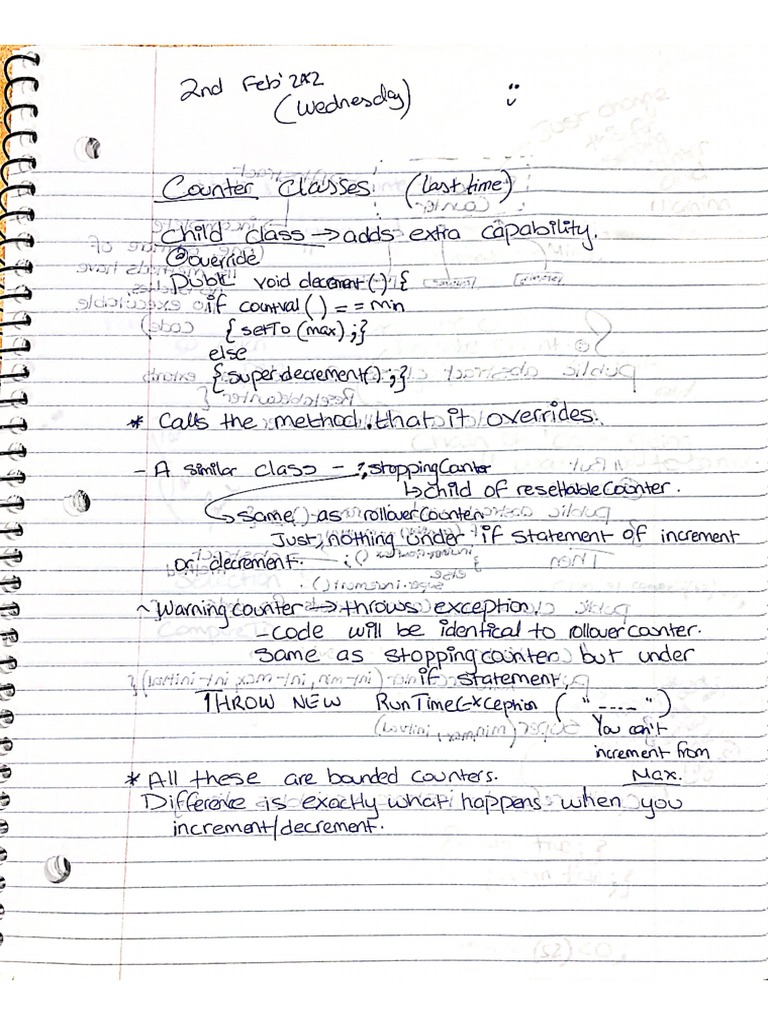 2nd Feb' 2022
(Wednesday)
Counter Classes (last time)
Child class → adds extra capability.
@override
Public void decrement() {
if countval() == min
{ setTo (max) ;}
else
{ super.decrement() ;}
* Calls the method that it overrides.
- A similar class - stoppingCounter
↳ child of resettableCounter.
same as rollover Counter
Just nothing under if statement of increment
or decrement.
~ Warning counter → throws exception.
- code will be identical to rollover counter.
Same as stopping counter but under
if statement,
THROW NEW RunTimeException ( " ---- " )
You can't
increment from
Max.
* All these are bounded counters.
Difference is exactly what happens when you
increment/decrement.